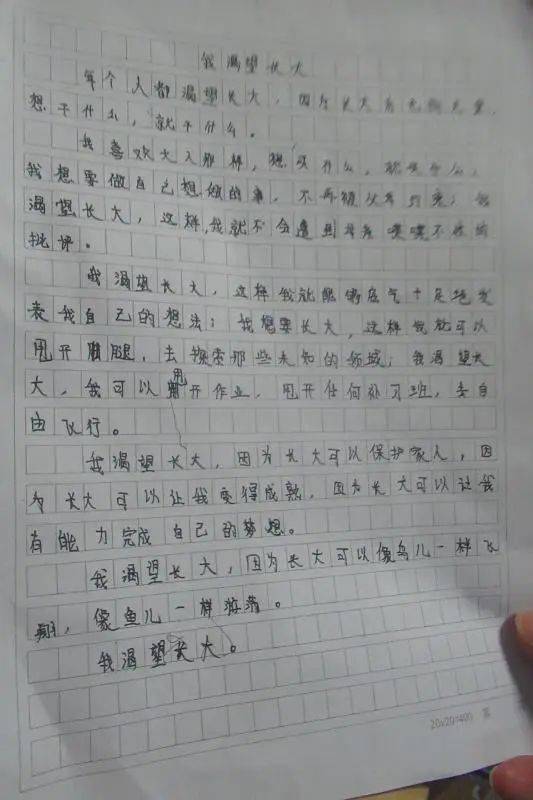 我渴望长大
每个人都渴望长大，因为长大有无限力量，
想干什么，就干什么。
我喜欢大人那样，想买什么，就买什么；
我想要做自己想做的事，不再被父母约束；我
渴望长大，这样，我就不会遭到母亲喋喋不休的
批评。
我渴望长大，这样我就能够底气十足地发
表我自己的想法；我想要长大，这样我就可以
甩开腿，去探索那些未知的领域；我渴望长
大，我可以甩开作业，甩开任何补习班，去自
由飞行。
我渴望长大，因为长大可以保护家人，因
为长大可以让我变得成熟，因为长大可以让我
有能力完成自己的梦想。
我渴望长大，因为长大可以像鸟儿一样飞
翔，像鱼儿一样游荡。
我渴望长大。
20×20=400